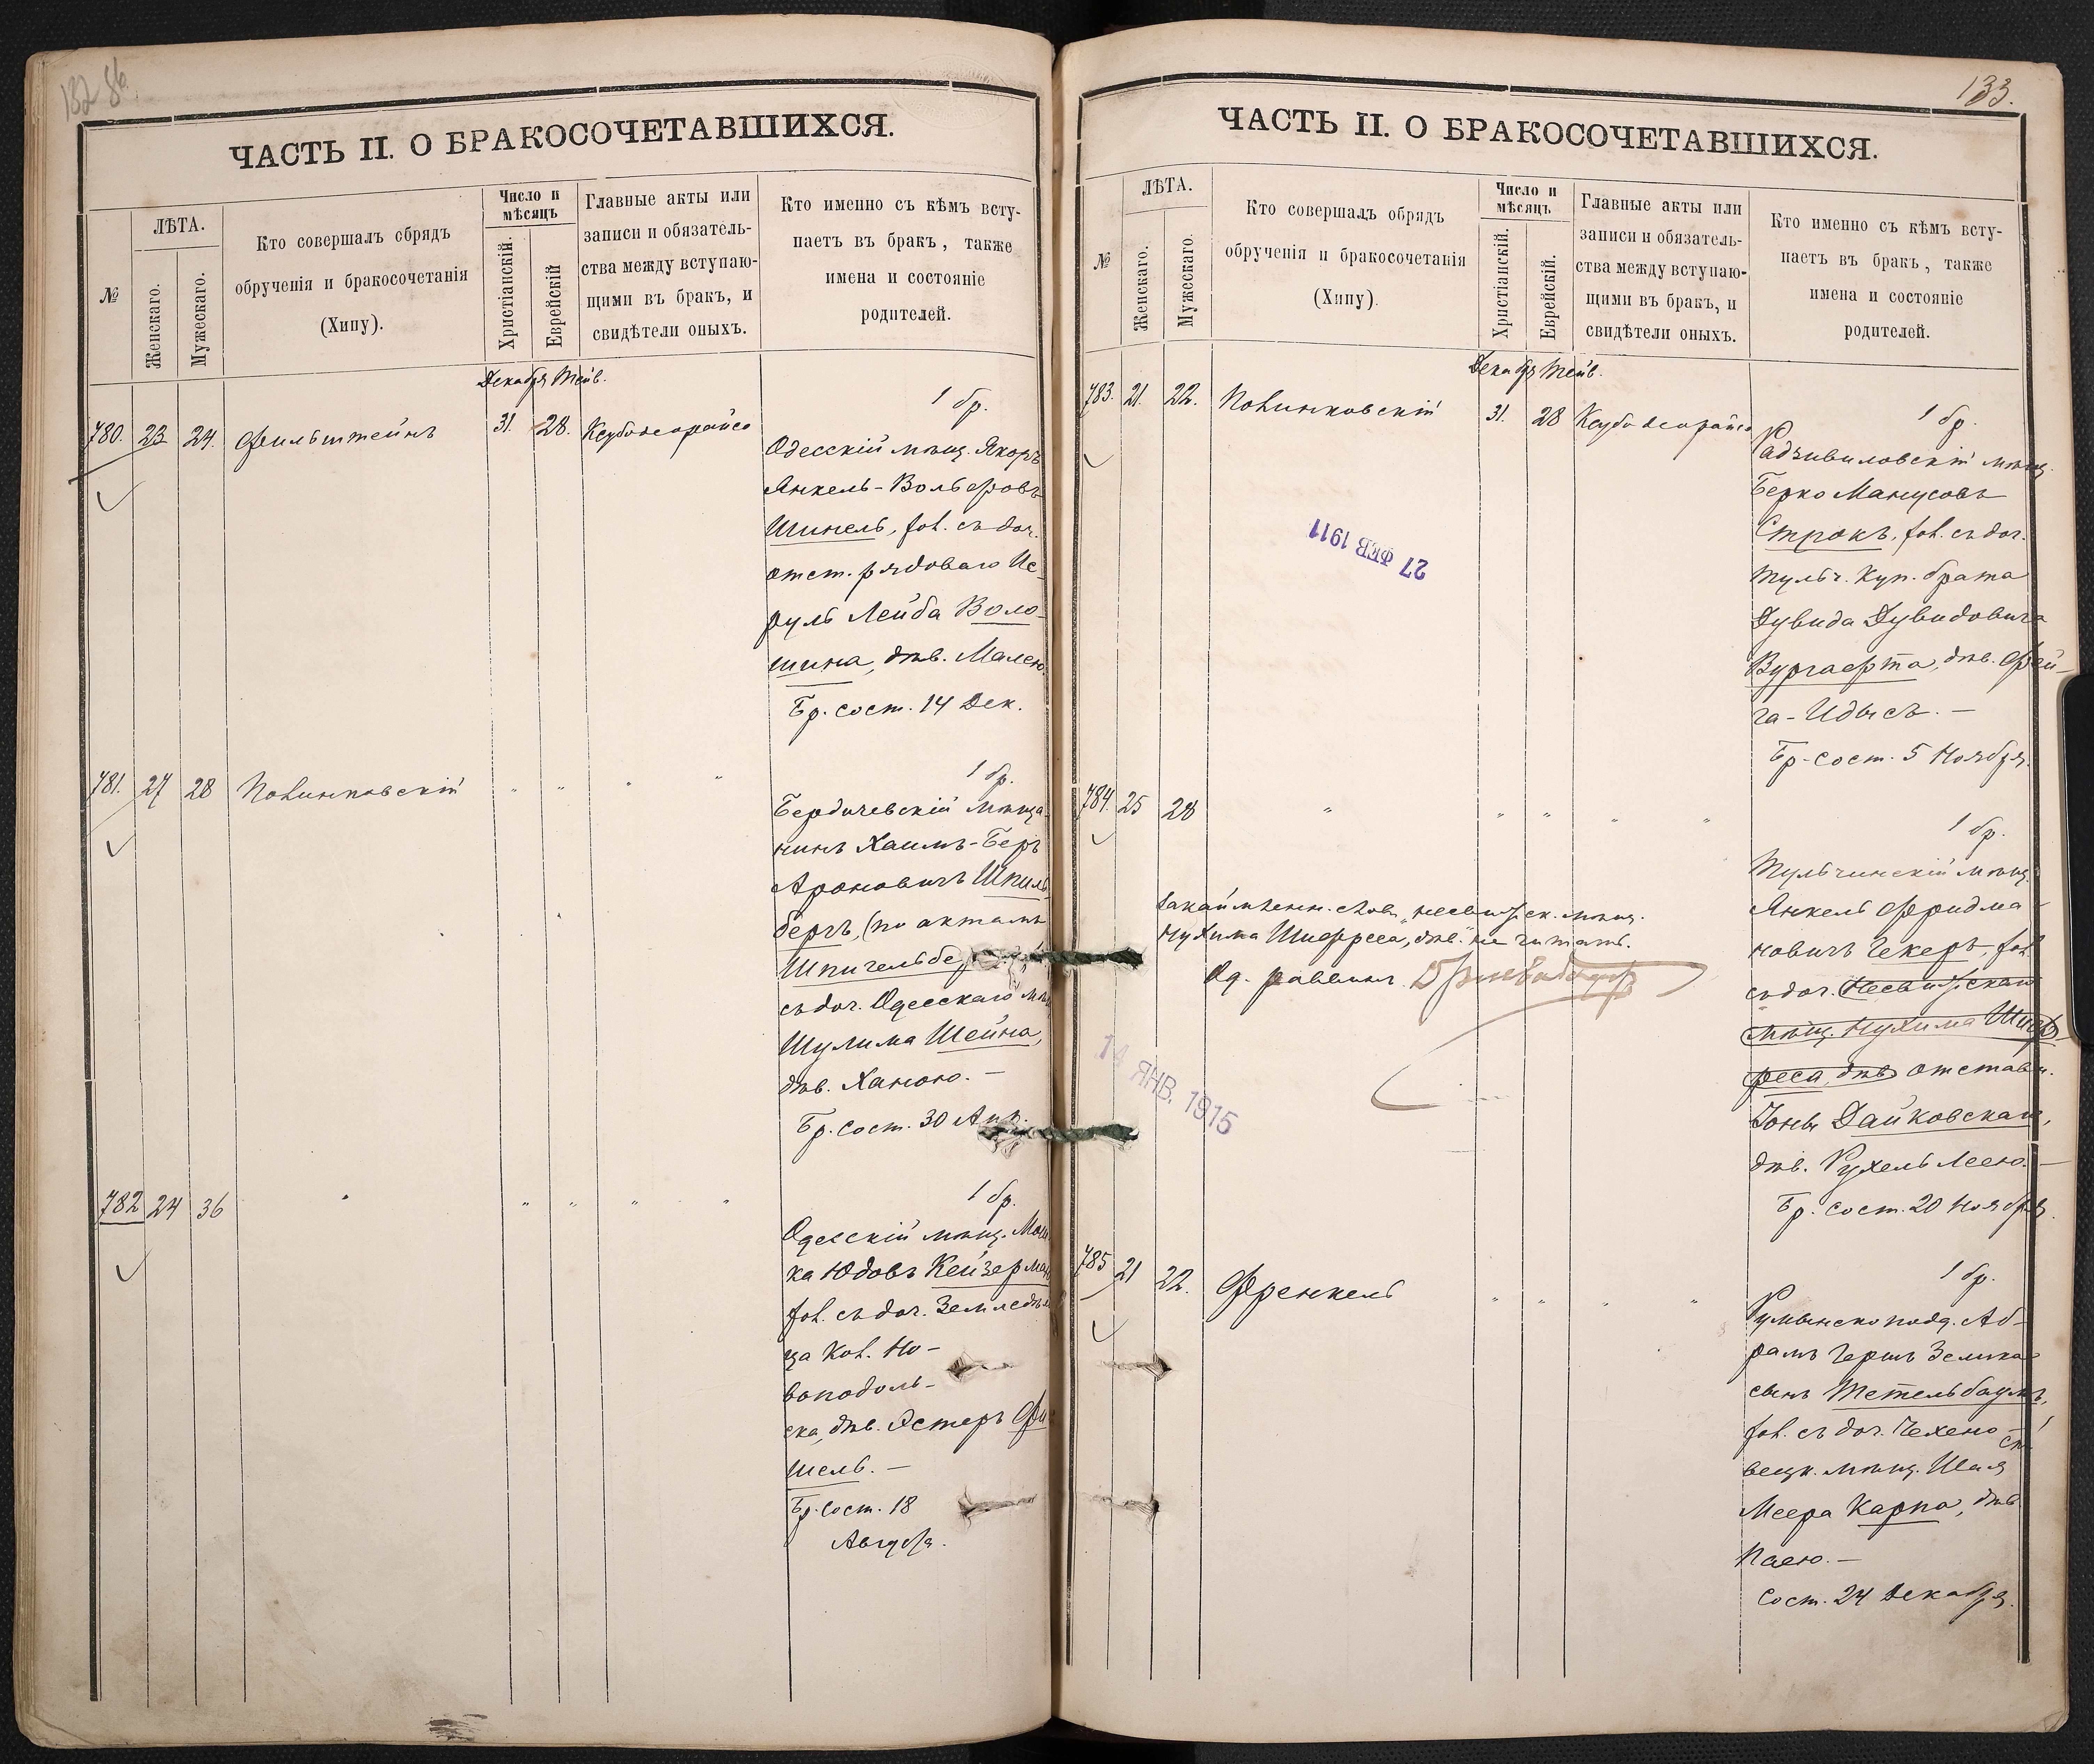 132 86
ЧАСТЬ II. О БРАКОСОЧЕТАВШИХСЯ.
№
ЛѢТА.
Женскаго.
Мужескаго.
Кто совершалъ обрядъ
обрученія и бракосочетанія
(Хипу).
Число и
мѣсяцъ
Христіанскій.
Еврейскій
Главные акты или
записи и обязатель-
ства между вступаю-
щими въ бракъ, и
свидѣтели оныхъ.
Кто именно съ кѣмъ всту-
паетъ въ бракъ, также
имена и состояніе
родителей.
Декабря Тейв.
780. 23 24. Фильштейнъ 31. 28.
1 бр.
Одесскій мѣщ. Якоръ
Янкель-Вольфовъ
Шинель, хол. съ доч.
отст. рядоваго Ис-
руль Лейба Воло-
шина, дѣв. Малею.
Бр. сост. 14 Дек.
781. 27 28 Полинковскій " " " "
1 бр.
Бердичевскій мѣща-
нинъ Хаимъ-Беръ
Ароновичъ Шпиль
бергъ, (по актамъ
Шпигельбе
съ доч. Одесскаго мѣщ
Шулима Шейна,
дѣв. Ханою. —
Бр. сост. 30 Апр.
782 24 36 " " " " "
1 бр.
Одесскій мѣщ. Мош
ка Юдовъ Кейзерман
хол. съ доч. Земледѣль
ца Кол. Но-
воподоль-
ска, дѣв. Эстеръ Фи
шель. —
Бр. сост. 18
Августа.
133.
ЧАСТЬ II. О БРАКОСОЧЕТАВШИХСЯ.
№
ЛѢТА.
Женскаго.
Мужескаго.
Кто совершалъ обрядъ
обрученія и бракосочетанія
(Хипу).
Число и
мѣсяцъ
Христіанскій.
Еврейскій.
Главные акты или
записи и обязатель-
ства между вступаю-
щими въ бракъ, и
свидѣтели оныхъ.
Кто именно съ кѣмъ всту-
паетъ въ бракъ, также
имена и состояніе
родителей.
Декабря Тейв.
783. 21. 22. Полинковскій 31. 28
1 бр.
Радзивиловскій мѣщ.
Берко Манусовъ
Строкъ, хол. съ доч.
Тульч. куп. брата
Дувида Дувидовича
Вургафта, дѣв. Фей-
га-Идысъ. —
Бр. сост. 5 Ноября.
27 ФЕВ 1911
784. 25 28 " " " " "
1 бр.
Тульчинскій мѣщ.
Янкель Фридма-
новичъ Чекеръ, хол.
съ доч. Несвижскаго
мѣщ. Нухима Шиф
реса, дѣв. отставн.
Іоны Дайковскаго,
дѣв. Рухель Леею. —
Бр. сост. 20 Ноября.
слов. "несвижск. мѣщ.
Нухима Шифреса, дѣв." не читать.
Од. раввинъ
14 ЯНВ. 1915
785 21 22. Френкель " " " "
1 бр.
Румынскоподд. Аб-
рамъ Гершъ Зелика
сынъ Тетельбаумъ,
хол. съ доч. Чехено-
вецк. мѣщ. Шая
Меера Карпа, дѣв.
Песею. —
Сост. 24 Декабря.